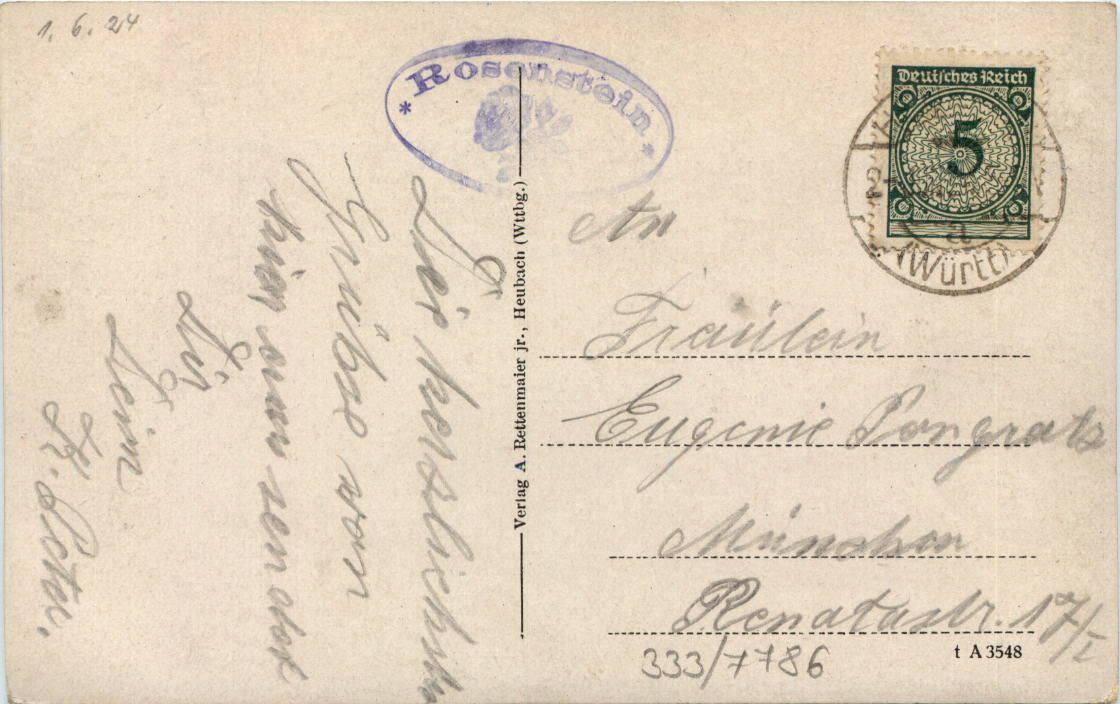 1. 6. 24
* Rosenstein *
Die herzlichsten
Grüße von
hier aus sendet
Dir
Dein
Peter.
Verlag A. Rettenmaier jr., Heubach (Wttbg.)
Deutsches Reich
5
a
(Württ)
An
Fräulein
Eugenie Pongratz
München
Renatastr. 17/I
t A 3548
333/7786